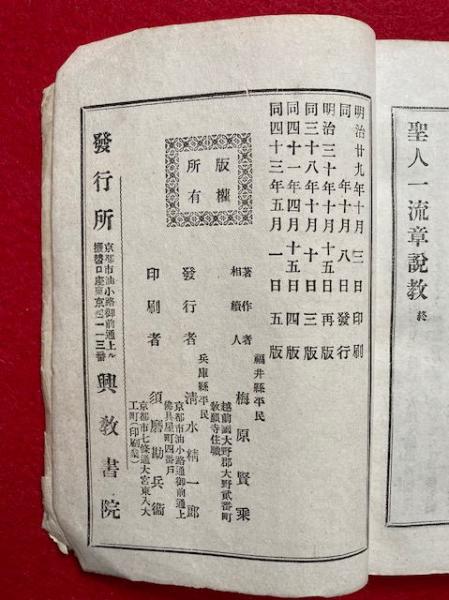 聖人一流章説教 終
明治廿九年十月三日印刷
同年十月八日發行
明治三十年十月十五日再版
同三十八年十月十日三版
同四十一年四月十五日四版
同四十三年五月一日五版
版權所有
福井縣平民
越前國大野郡大野貳番町
教願寺住職
著作者
相續人
梅原賢乗
兵庫縣平民
京都市油小路通御前通上
佛具屋町四番戸
發行者 清水精一郎
京都市七條通大宮東入大
工町(印刷業)
印刷者 須磨勘兵衞
發行所
京都市油小路御前通上ル
振替口座東京
興教書院